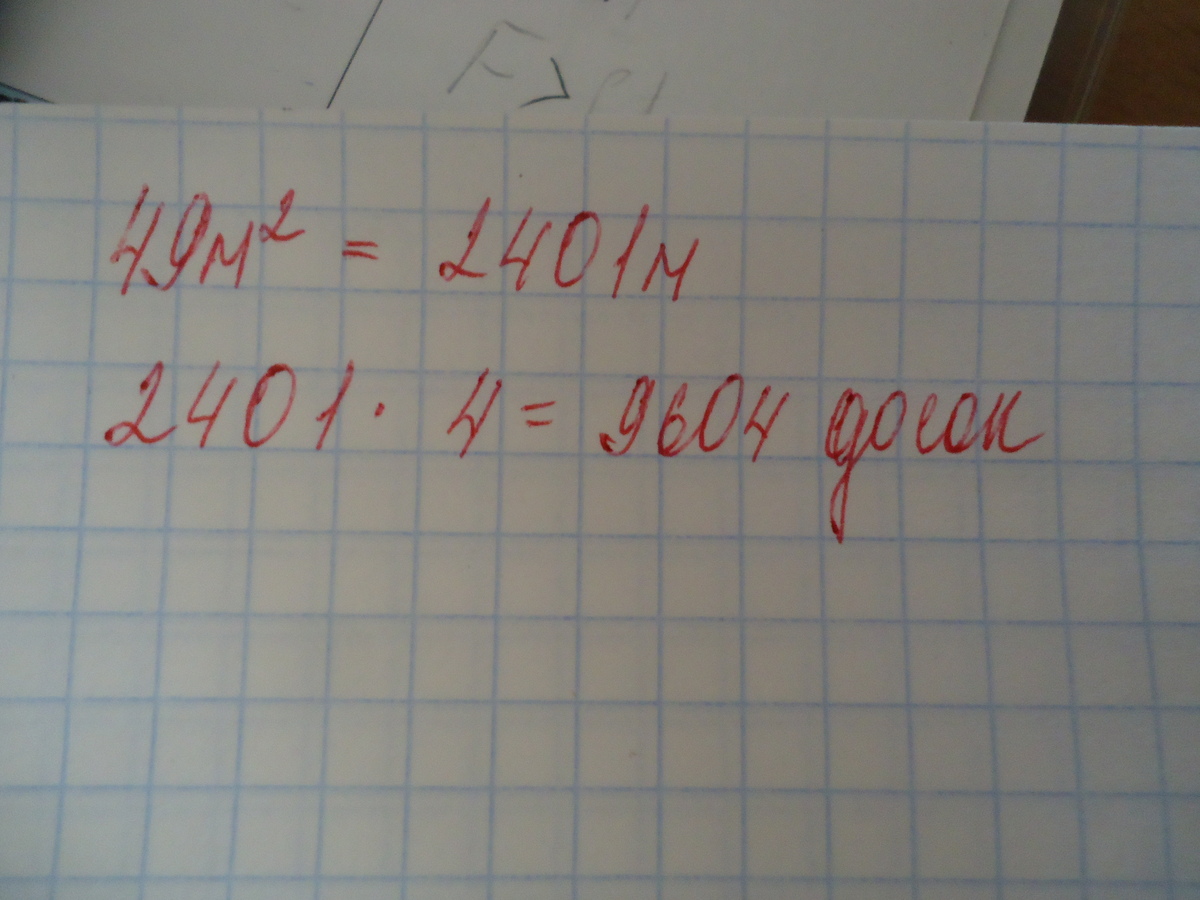 49м² = 2401м
2401 · 4 = 9604 досок